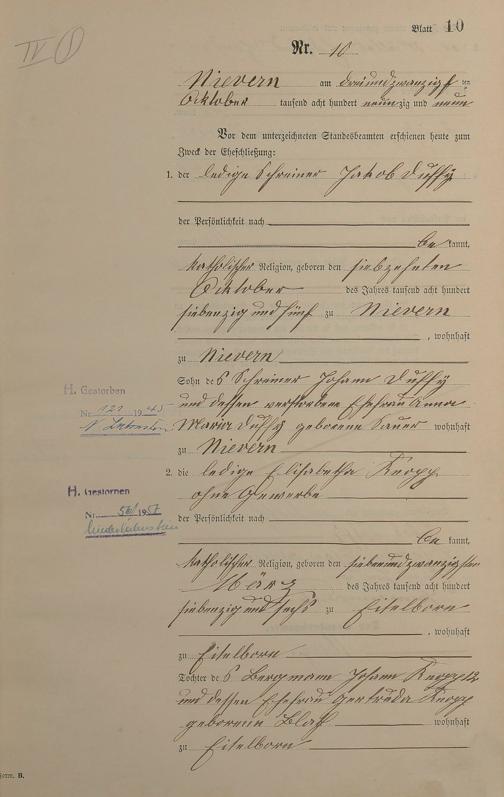 Blatt 10
IV 1
Nr. 10
Nievern am dreiundzwanzigsten
Oktober tausend acht hundert neunzig und neun
Vor dem unterzeichneten Standesbeamten erschienen heute zum
Zweck der Eheschließung:
1. der ledige Schreiner Jakob Duffy
der Persönlichkeit nach
bekannt,
katholischer Religion, geboren den siebzehnten
Oktober des Jahres tausend acht hundert
siebenzig und fünf zu Nievern
, wohnhaft
zu Nievern
Sohn des Schreiner Johann Duffy
und dessen verstorbene Ehefrau Anna
Maria Duffy geborene Sauer wohnhaft
zu Nievern
H. Gestorben
Nr. 121 1945
2. die ledige Elisabetha Knopp
ohne Gewerbe
H. Gestorben
Nr. 1957
Niederlahnstein
der Persönlichkeit nach
bekannt,
katholischer Religion, geboren den siebenundzwanzigsten
März des Jahres tausend acht hundert
siebenzig und sechs zu Eitelborn
, wohnhaft
zu Eitelborn
Tochter des Bergmann Johann Knopp
und dessen Ehefrau Gertruda Knopp
geborenen wohnhaft
zu Eitelborn
Form. B.